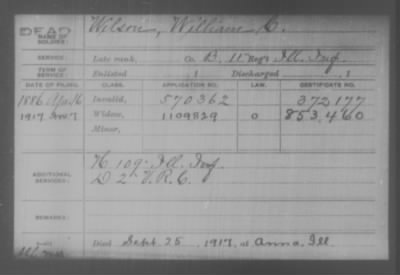 DEAD
NAME OF SOLDIER: Wilson, William C.
SERVICE: Late rank, Co. B, 11 Reg't Ill. Inf.
TERM OF SERVICE: Enlisted , 1 Discharged , 1
DATE OF FILING. CLASS. APPLICATION NO. LAW. CERTIFICATE NO.
1886 Apr 16 Invalid, 570362 372177
1917 Nov 7 Widow, 1109829 O 853,460
Minor,
ADDITIONAL SERVICES: K 109" Ill. Inf.
D 2" V.R.C.
REMARKS:
Died Sept. 25, 1917, at Anna, Ill.